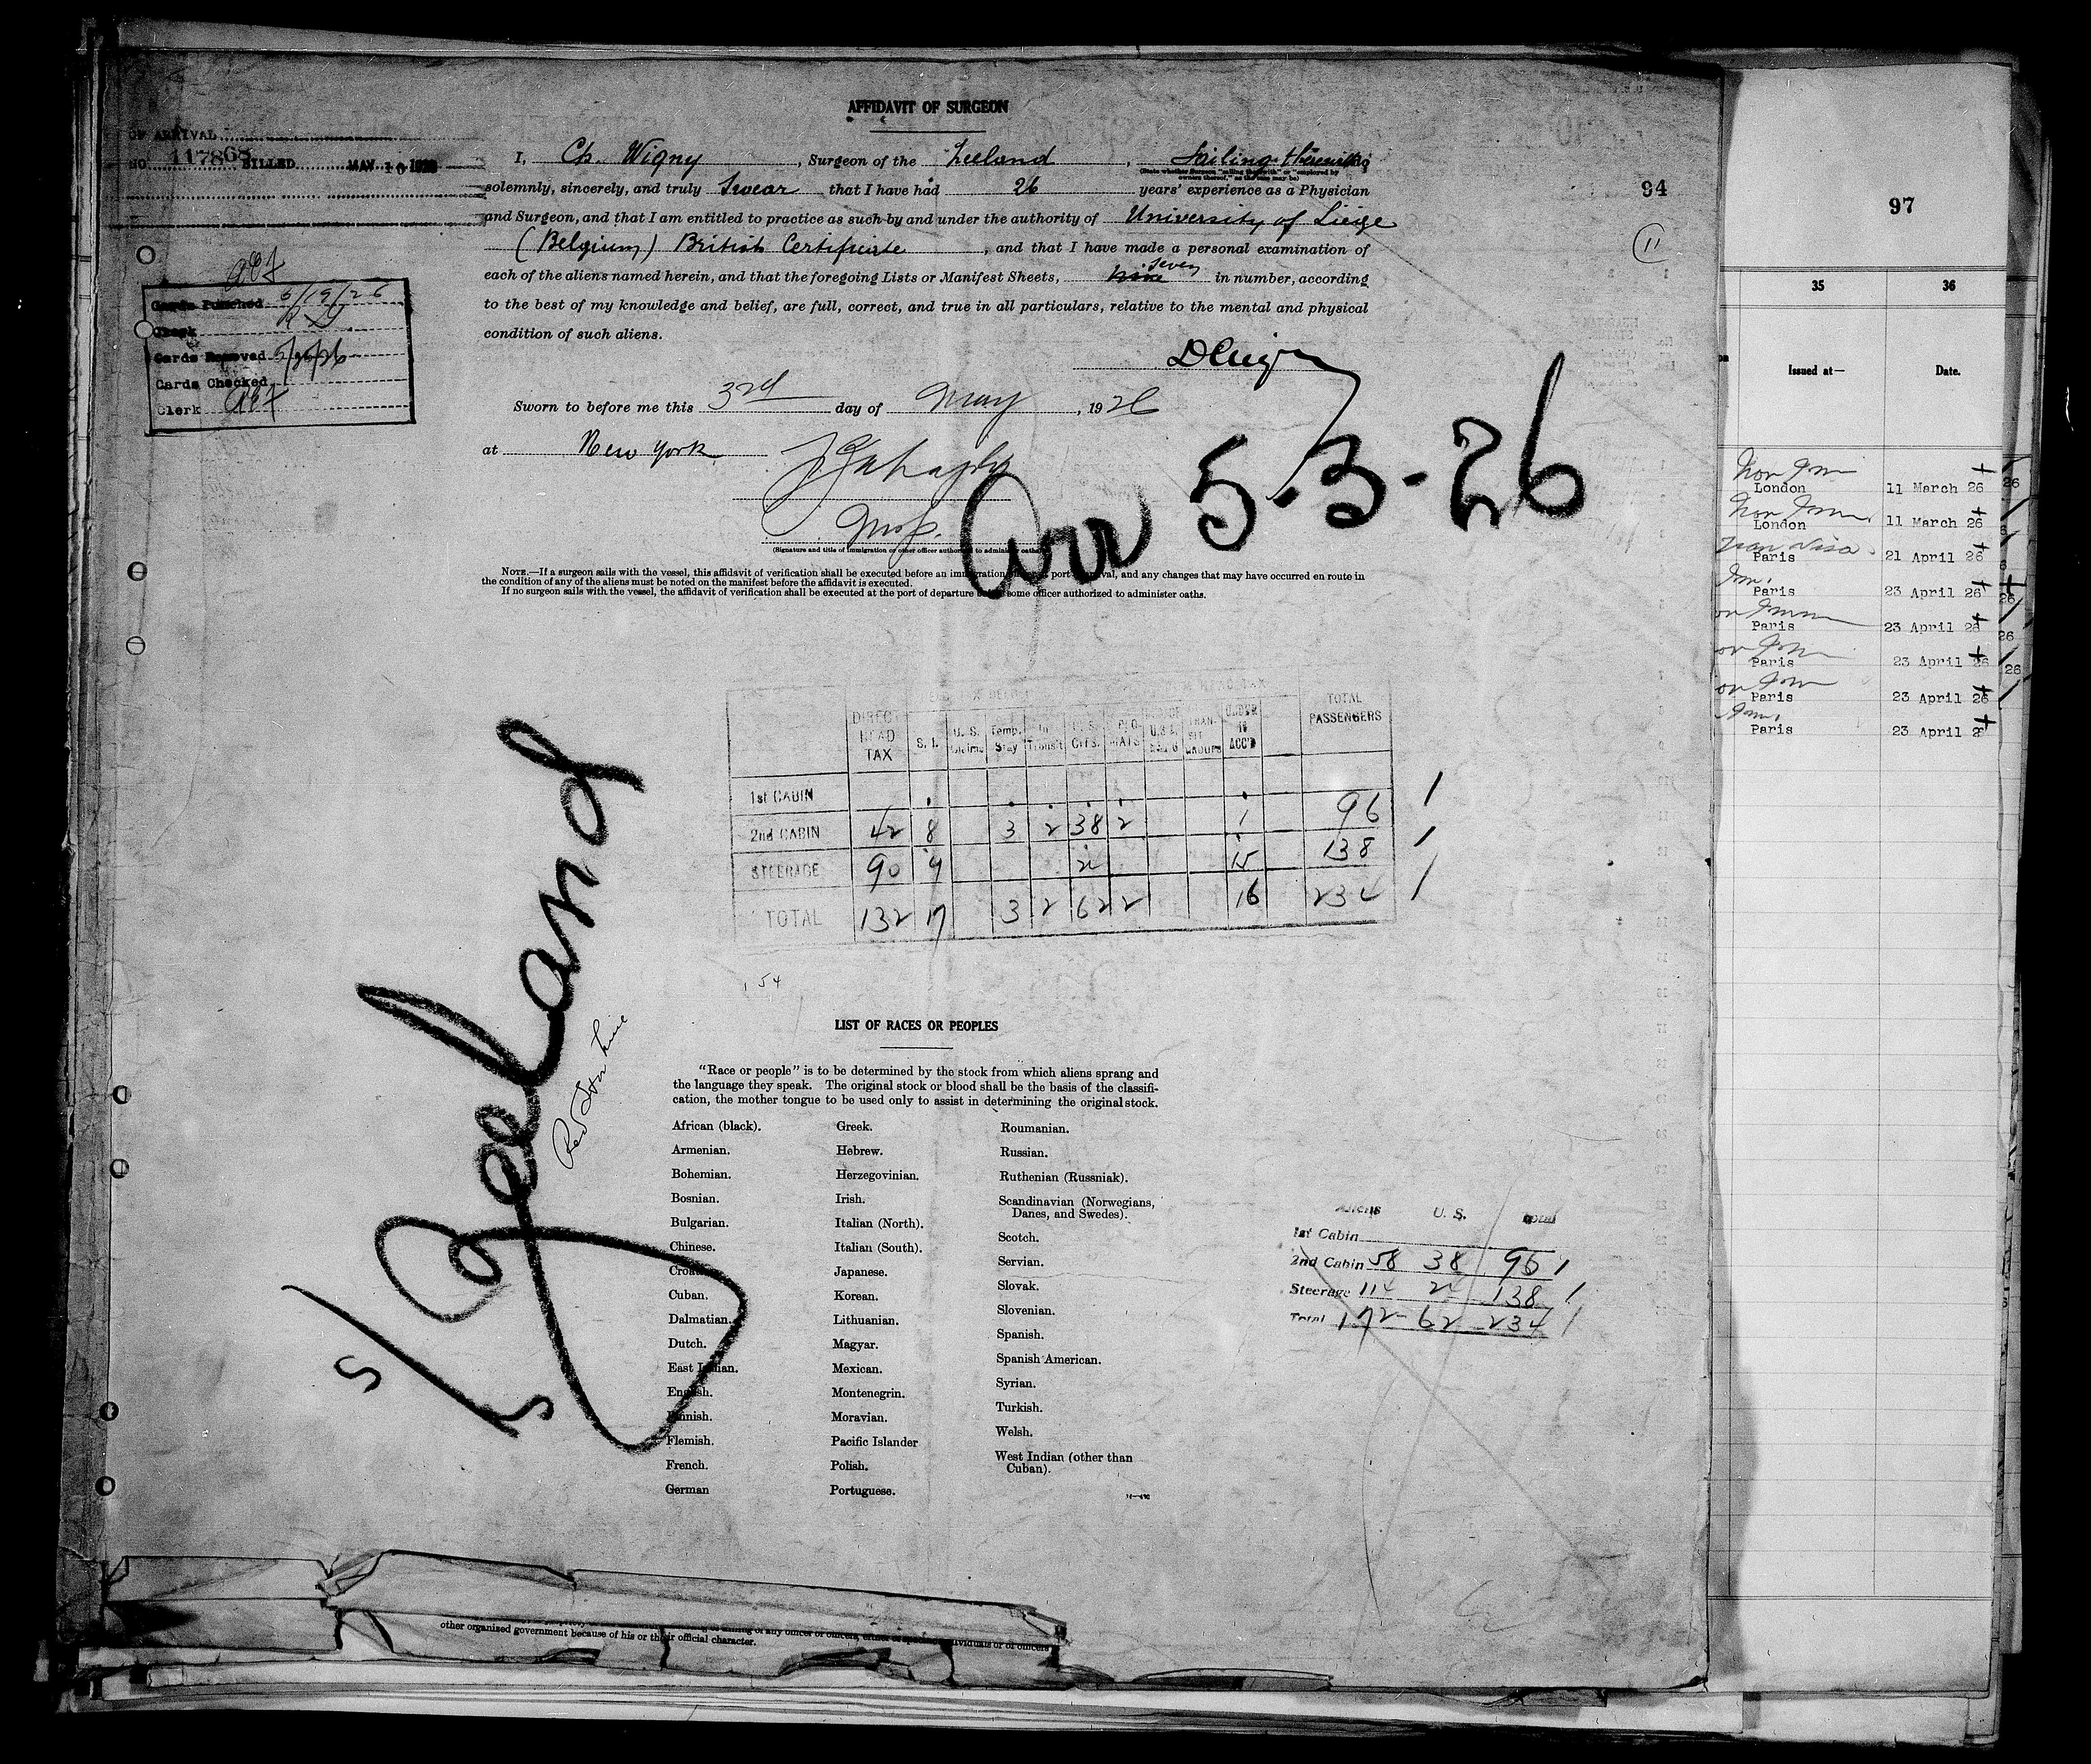 AFFIDAVIT OF SURGEON
OF ARRIVAL
NO. 117868 BILLED MAY 10 1926
I, Ch. Wigny, Surgeon of the Zeeland, Sailing therewith
(State whether Surgeon "sailing therewith" or "employed by
owners thereof," as the case may be)
solemnly, sincerely, and truly Swear that I have had 26 years' experience as a Physician
and Surgeon, and that I am entitled to practice as such by and under the authority of University of Liège
(Belgium) British Certificate, and that I have made a personal examination of
each of the aliens named herein, and that the foregoing Lists or Manifest Sheets, nine seven in number, according
to the best of my knowledge and belief, are full, correct, and true in all particulars, relative to the mental and physical
condition of such aliens.
94
11
Cards Punched 5/19/26
Clerk
Cards Removed
Cards Checked
Clerk
Sworn to before me this 3rd day of May, 1926
at New York
Arr 5-3-26
(Signature and title of immigration or other officer authorized to administer oaths)
NOTE.—If a surgeon sails with the vessel, this affidavit of verification shall be executed before an immigration port val, and any changes that may have occurred en route in
the condition of any of the aliens must be noted on the manifest before the affidavit is executed.
If no surgeon sails with the vessel, the affidavit of verification shall be executed at the port of departure some officer authorized to administer oaths.
DIRECT HEAD TAX S. I. U. S. Temp. Stay In Transit U. S. Citz. UNDER 16 ACC'D TOTAL PASSENGERS
1st CABIN
2nd CABIN 42 8 3 2 38 2 1 96 1
STEERAGE 90 9 24 15 138 1
TOTAL 132 17 3 2 62 2 16 234 1
154
Zeeland
Red Star Line
LIST OF RACES OR PEOPLES
"Race or people" is to be determined by the stock from which aliens sprang and
the language they speak. The original stock or blood shall be the basis of the classifi-
cation, the mother tongue to be used only to assist in determining the original stock.
African (black).
Armenian.
Bohemian.
Bosnian.
Bulgarian.
Chinese.
Croatian.
Cuban.
Dalmatian.
Dutch.
East Indian.
English.
Finnish.
Flemish.
French.
German
Greek.
Hebrew.
Herzegovinian.
Irish.
Italian (North).
Italian (South).
Japanese.
Korean.
Lithuanian.
Magyar.
Mexican.
Montenegrin.
Moravian.
Pacific Islander
Polish.
Portuguese.
Roumanian.
Russian.
Ruthenian (Russniak).
Scandinavian (Norwegians,
Danes, and Swedes).
Scotch.
Servian.
Slovak.
Slovenian.
Spanish.
Spanish American.
Syrian.
Turkish.
Welsh.
West Indian (other than
Cuban).
Aliens U. S. Total
1st Cabin
2nd Cabin 58 38 96 1
Steerage 114 24 138 1
Total 172 62 234 1
other organized government because of his or their official character.
97
35 36
Issued at— Date.
London 11 March 26
London 11 March 26
Paris 21 April 26
Paris 23 April 26
Paris 23 April 26
Paris 23 April 26
Paris 23 April 26
Paris 23 April 2